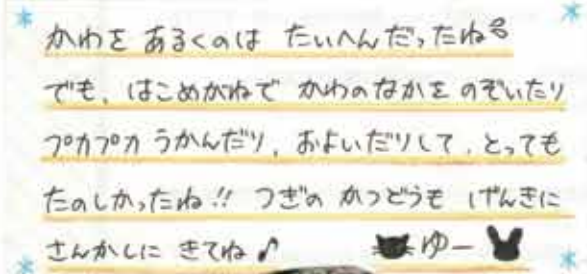 かわを あるくのは たいへんだったね
でも、はこめがねで かわのなかを のぞいたり
プカプカ うかんだり、およいだりして、とっても
たのしかったね!! つぎの かつどうも げんきに
さんかしに きてね♪ ゆー